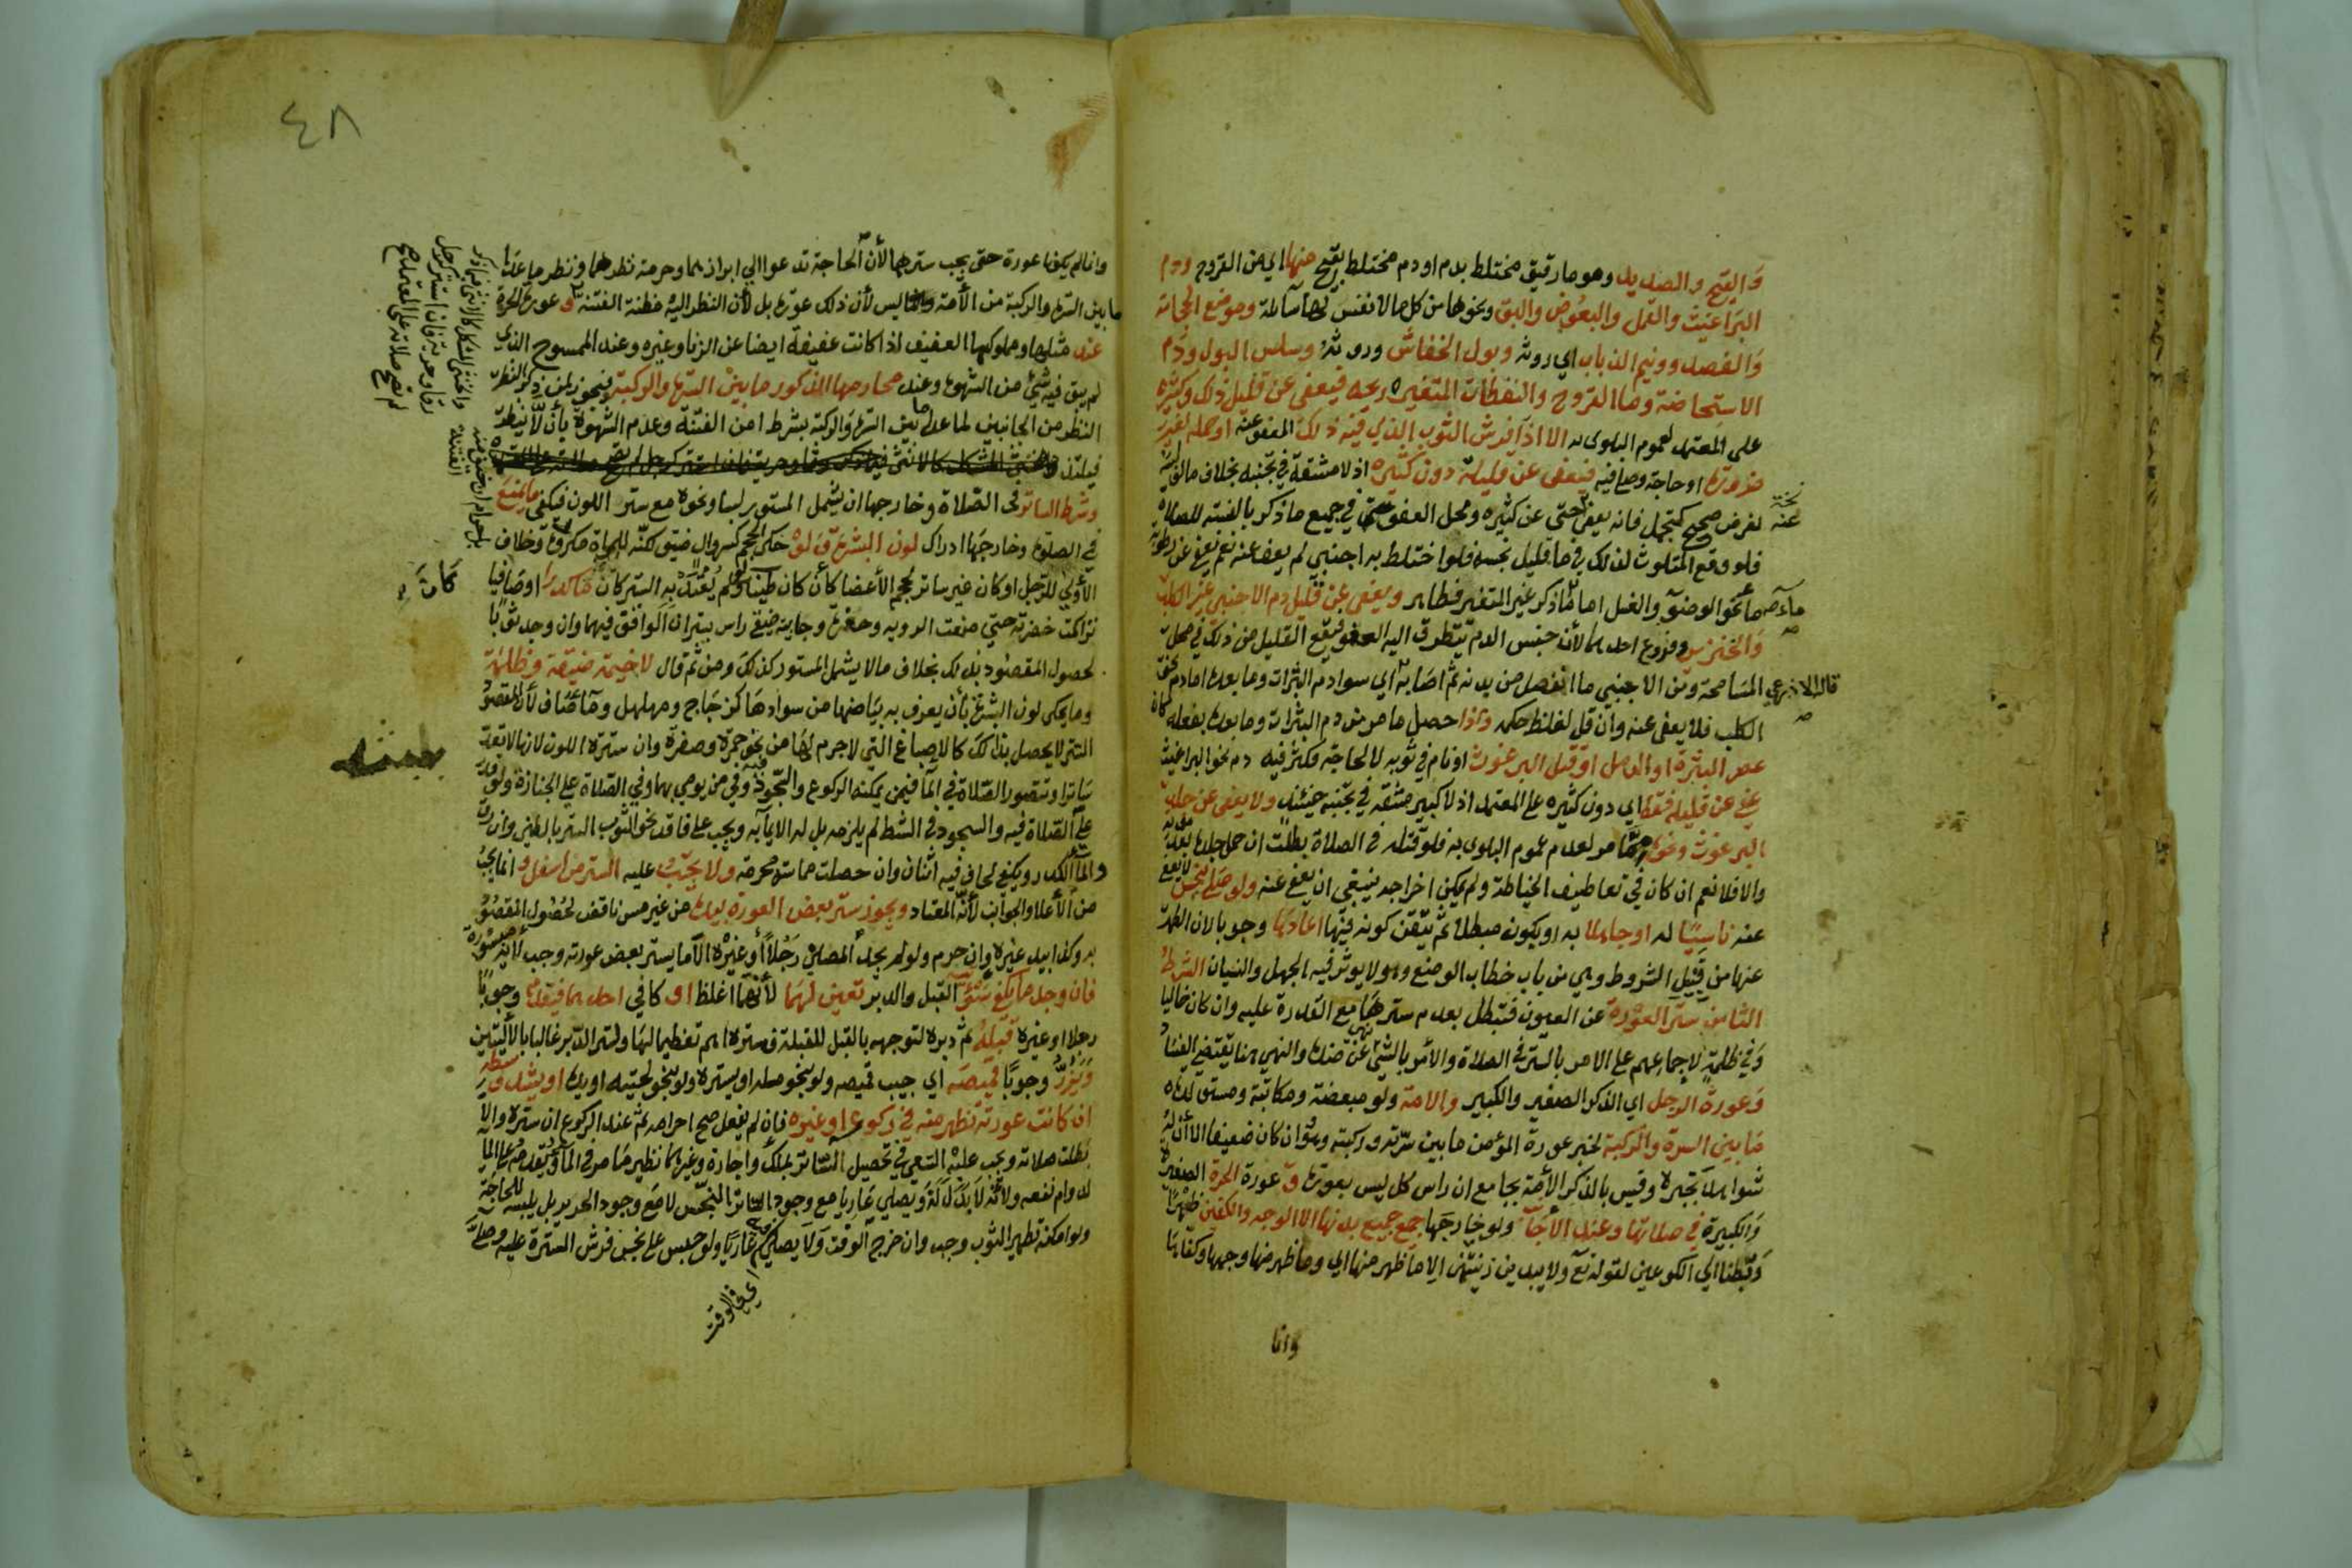 وَالقيح والصديد وهو ما رقيق مختلط بدم او دم مختلط بقيح منها اي من القروح ودم
البَرَاغيث والقمل والبعُوض والبق ونحوها من كل ما لا نفس لها سائلة وموضع الحجامة
وَالفصد وونيم الذباب اي روثه وبول الخفاش وروثه وسلس البول ودَم
الاستحاضة وما القروح والنفطات المتغيره ريحه فيعفى عن قليل ذلك وكثيره
على المعتمد لعموم البلوى به الا اذا فرش الثوب الذي فيه ذلك المعفو عنه او حمله لغير
ضرورة او حاجة وصلى فيه فيعفى عن قليله دون كثيره اذ لا مشقة في تجنبه بخلاف مالو لبسه
لغرض صحيح كتجمل فانه يعفى حتى عن كثيره ومحل العفو في جميع ما ذكر بالنسبة للصلاه
فلو وقع المتلوث بذلك في ما قليل نجسه فلو اختلط به اجنبي لم يعف عنه نعم يعفى عن رطوبة
ماء نحو الوضو والغسل اما ما ذكر غير المتغير فطاهر ويعفى عن قليل دم الاجنبي غير الكلب
وَالخنزير وفروع احدهما لأن جنس الدم يتطرق اليه العفو فيقع القليل من ذلك في محل
المسَامحة ومن الاجنبي ما انفصل من بدنه ثم اصَابه اي سوا دم البثرات وما بعده اما دم نحو
قاله الاذرعي
الكلب فلا يعفى عنه وان قل لغلظ حكمه واذا حصل ما مر من دم البثرات وما بعده بفعله كان
عصر البثرة او الدمل او قتل البرغوث او نام في ثوبه لا لحاجة فكثر فيه دم نحو البراغيث
عفي عن قليله فقط اي دون كثيره على المعتمد اذ لا كبير مشقة في تجنبه حينئذ ولا يعفى عن جلد
البرغوث ونحوه مما مر لعدم عموم البلوى به فلو قتله في الصلاة بطلت ان حمل جلده بعد موته
والا فلا نعم ان كان في تعاطيف الخياطة ولم يمكن اخراجه ينبغي ان يعفى عنه ولو صَلى بنجس لا يعفى
عنه ناسِيًا له او جاهلا به او بكونه مبطلا ثم تيقن كونه فيها اعَادهَا وجوبا لان الطهر
عنها من قبيل الشروط وهي من باب خطاب الوضع وهو لا يوثر فيه الجهل والنسيان الشرط
الثامن ستر العَوْرة عن العيون فتبطل بعدم سترهَا مع القدرة عليه وان كان خاليا
وَفي ظلمةٍ لاجماعهم على الامر بالستر في الصلاة والأمر بالشئ نهي عن ضده والنهي هنا يقتضي الفسَاد
وَعورةُ الرجل اي الذكر الصغير والكبير والامة ولو مبعضة ومكاتبة ومستولدة
مَا بين السرة والركبة لخبر عورة المؤمن ما بين سرته وركبته وهو وان كان ضعيفا الا أن له
شواهد تجبره وقيس بالذكر الأمة بجامع ان راس كل ليس بعورة و عورة الحرة الصغيرة
وَالكبيرة في صلاتها وعند الأجانب ولو خارجَها جميع بدنها الا الوجه والكفين ظهرا
وَبطنا الي الكوعين لقوله تع ولا يبدين زينتهن الا ما ظهر منها اي وما ظهر منها وجهها وكفاها
وانا
٤٨
وانما لم يكونا عورة حتى يجب سترهما لأن الحاجة تدعوا الي ابرازهما وحرمة نظرهما ونظر ما عدا
ما بين السرة والركبة من الأمة ليس لأن ذلك عورة بل لأن النظر اليه مظنة الفتنة و عورة الحرة
عند مثلها ومملوكها العفيف اذا كانت عفيفة ايضا عن الزنا وغيره وعند الممسوح الذي
لم يبق فيه شئ من الشهوة وعند محارمها الذكور ما بين السرة والركبة فيجوز لمن ذكر النظر
النظر من الجانبين لما عدا ما بين السرة والركبة بشرط امن الفتنة وعدم الشهوة بأن لا ينظر
فيلتذ
والخنثى المشكل كالانثى فيما ذكر
رقا وحرية فان استتر كرجل
لم تصح صلاته على المعتمد صح
وشرط الساتر في الصّلاة وخارجها ان يشمل المستور لبسا ونحوه مع ستر اللون فيكفي ما يمنع
في الصلاة وخارجهَا ادراك لون البشرة وَلوْ حكى الحجم كسروال ضيق لكنه للمرأة مكروه وخلاف
الأولى للرجل او كان غير ساتر لحجم الأعضا كأن كان طينا ولو لم يُعتَد به الستر كان او صَافيا
كَماء كدر
تراكمت خضرته حتى منعت الروية وحفرة وجابية ضيقي راس يستران الواقف فيهما وان وجد ثوبًا
لحصول المقصود بذلك بخلاف مالا يشمل المستور كذلك ومن ثم قال لا خيمة ضيقة وظلمة
وما يحكي لون البشرة بأن يعرف به بيَاضها من سوادهَا كزجَاج ومهلهل ومآء صَاف لأن المقصود
الستر لا يحصل بذلك كالاصباغ التي لا جرم لها من نحو حمرة وصفرة وان سترة اللون لانها لا تعد
سَاترا وتتصور الصّلاة في المآ فيمن يمكنه الركوع والسجود فيه وفي من يومي بهما وفي الصّلاة على الجنازة ولو قدر
على الصّلاة فيه والسجود في الشط لم يلزمه بل له الايماء به ويجب على فاقد نحو الثوب الستر بالطين وان رق
والماَ الكدر ويكفي لحاف فيه اثنان وان حصلت مماسة محرمة ولا يجب عليه الستر من اسفل و انما يجبُ
من الأعلا والجوانب لأنه المعتاد ويجوز ستر بعض العورة بيده من غير مس ناقض لحصُول المقصُود
به وكذا بيد غيره وان حرم ولو لم يجد المصلي رَجُلاً أو غيره الا ما يستر بعض عورته وجب لأنه ميسورة
فان وجد ما يكفي سَوْأتيه القبل والدبر تعين لهمَا لأنهمآ اغلظ او كافي احدهما فيقدم وجوبًا
رجلا او غيره قبلَهُ ثم دبره لتوجهه بالقبل للقبلة فستره اهم تعظيما لهَا ولستر الدّبر غالبا بالأليتين
وَيَزُرُّ وجوبًا قميصَه اي جيب قميصه ولو بنحو مسلة او يستره ولو بنحو لحيته او يده او يشد وسطه
ان كانت عورته تظهر منه في ركوعه او غيره فان لم يفعل صح احرامه ثم عند الركوع ان ستره والا
بَطلت صلاته ويجب عليه السّعي في تحصيل السّاتر بملك واجارة وغيرهما نظير مَا مر في المآ ويُقدمه على الما
لدوام نفعه ولانه لا بَدَلَ لَهُ ويصلي عَاريا مع وجود الساتر النّجس لا مَع وجود الحرير بل يلبسه للحاجة
ولو امكنه تطهير الثوب وجب وان خرج الوقت وَلا يصلي عَاريًا ولو حبس على نجس فرش السّترة عليه وصلّى
اي في الوقت